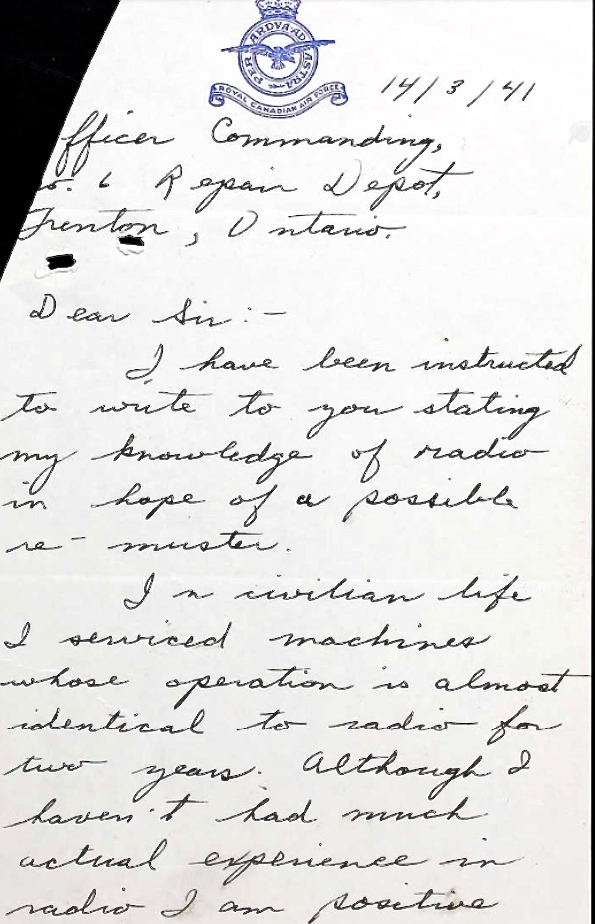 PER ARDUA AD ASTRA
ROYAL CANADIAN AIR FORCE
14/3/41
fficer Commanding,
o. 6 Repair Depot,
Trenton, Ontario.
Dear Sir:-
I have been instructed
to write to you stating
my knowledge of radio
in hope of a possible
re-muster.
In civilian life
I serviced machines
whose operation is almost
identical to radio for
two years. Although I
haven't had much
actual experience in
radio I am positive